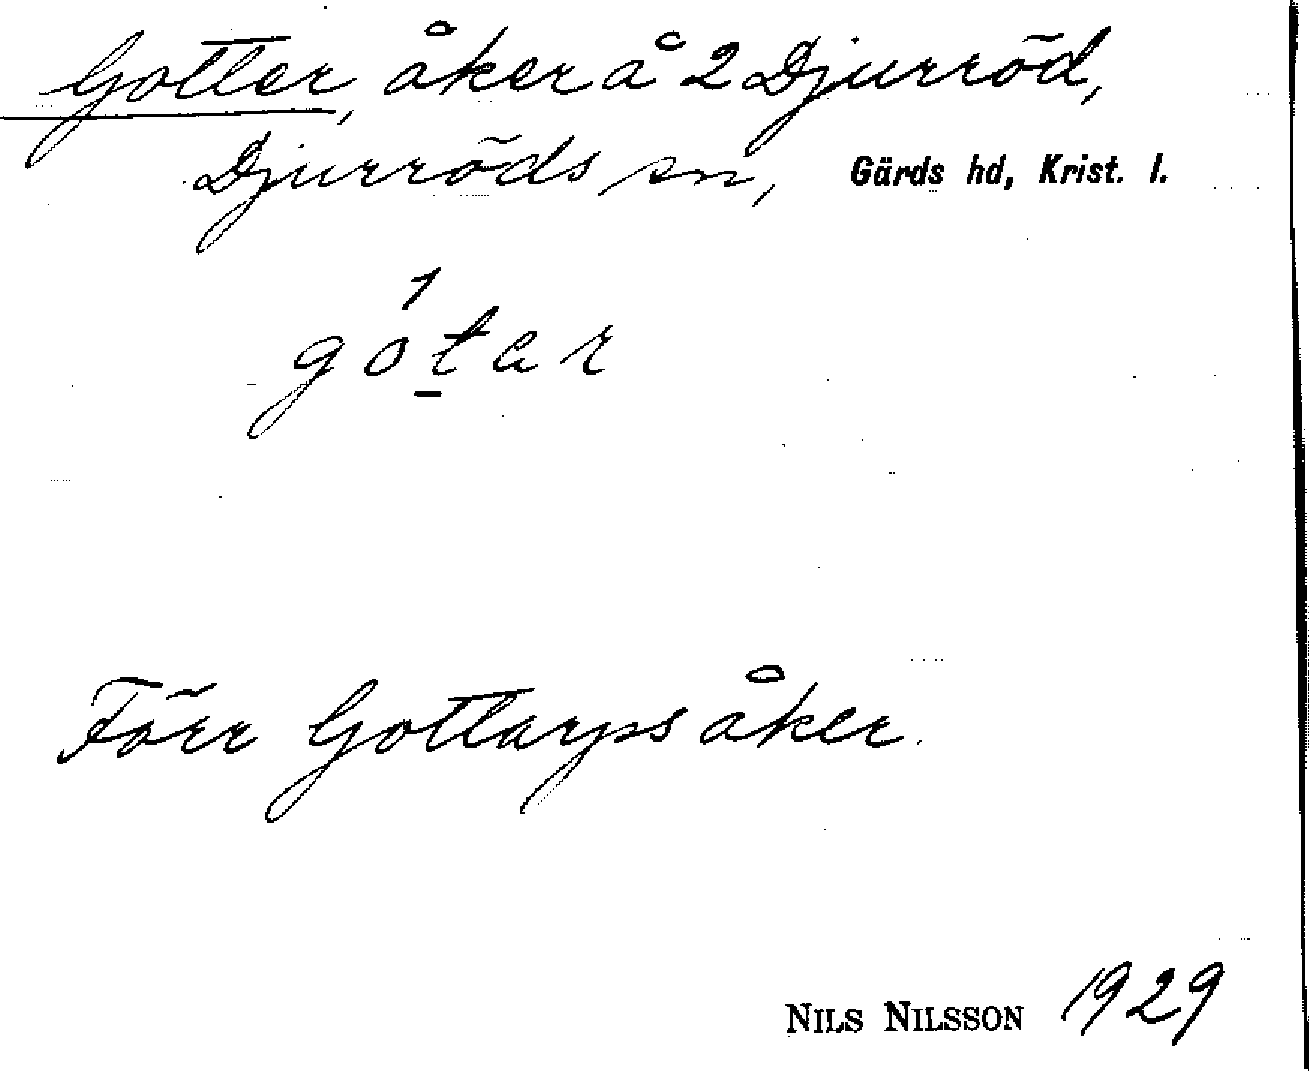 Gotter, åker å 2 Djurröd,
Djurröds sn, Gärds hd, Krist. l.
gótar
Förr Gottarpsåker.
NILS NILSSON 1929